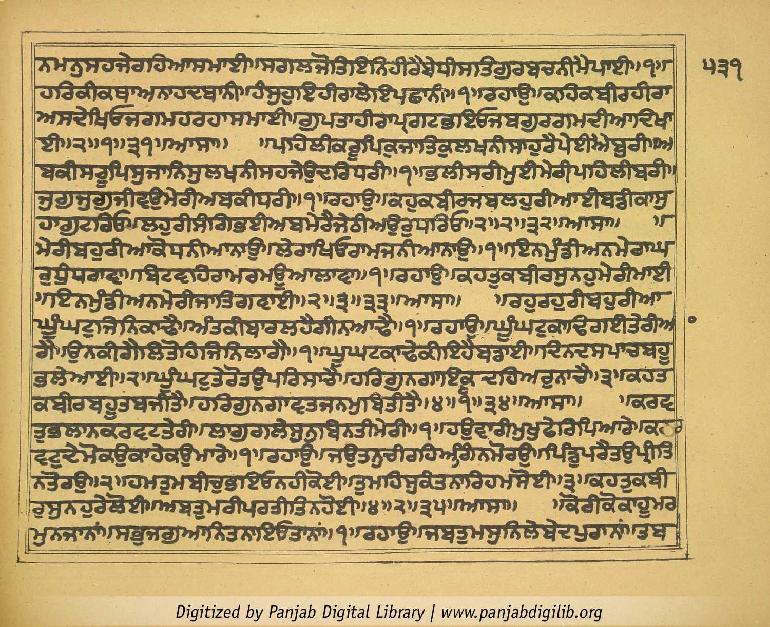 ਨਮਨੁਸਹਜੇਰਹਿਆਸਮਾਈ॥ਸਗਲਜੋਤਿਇਨਿਹੀਰੈਬੇਧੀਸਤਿਗੁਰਬਚਨੀਮੈਪਾਈ॥੧॥
ਹਰਿਕੀਕਥਾਅਨਾਹਦਬਾਨੀ॥ਹੰਸੁਹੁਇਹੀਰਾਲੇਇਪਛਾਨੀ॥੧॥ਰਹਾਉ॥ਕਹਿਕਬੀਰਹੀਰਾ
ਅਸਦੇਖਿਓਜਗਮਹਰਹਾਸਮਾਈ॥ਗੁਪਤਾਹੀਰਾਪ੍ਰਗਟਭਇਓਜਬਗੁਰਗਮਦੀਆਦਿਖਾ
ਈ॥੨॥੧॥੩੧॥ਆਸਾ॥ ਪਹਿਲੀਕਰੂਪਿਕੁਜਾਤਿਕੁਲਖਨੀਸਾਹੁਰੈਪੇਈਐਬੁਰੀ॥ਅ
ਬਕੀਸਰੂਪਿਸੁਜਾਨਿਸੁਲਖਨੀਸਹਜੇਉਦਰਿਧਰੀ॥੧॥ਭਲੀਸਰੀਮੁਈਮੇਰੀਪਹਿਲੀਬਰੀ॥
ਜੁਗੁਜੁਗੁਜੀਵਉਮੇਰੀਅਬਕੀਧਰੀ॥੧॥ਰਹਾਉ॥ਕਹੁਕਬੀਰਜਬਲਹੁਰੀਆਈਬਡੀਕਾਸੁ
ਹਾਗੁਟਰਿਓ॥ਲਹੁਰੀਸੰਗਿਭਈਅਬਮੇਰੈਜੇਠੀਅਉਰੁਧਰਿਓ॥੨॥੨॥੩੨॥ਆਸਾ॥ ॥
ਮੇਰੀਬਹੁਰੀਆਕੋਧਨੀਆਨਾਉ॥ਲੇਰਾਖਿਓਰਾਮਜਨੀਆਨਾਉ॥੧॥ਇਨਮੁੰਡੀਅਨਮੇਰਾਘ
ਰੁਧੁੰਧਰਾਵਾ॥ਬਿਟਵਹਿਰਾਮਰਮਊਆਲਾਵਾ॥੧॥ਰਹਾਉ॥ਕਹਤੁਕਬੀਰਸੁਨਹੁਮੇਰੀਮਾਈ
॥ਇਨਮੁੰਡੀਅਨਮੇਰੀਜਾਤਿਗਵਾਈ॥੨॥੩॥੩੩॥ਆਸਾ॥ ॥ਰਹੁਰਹੁਰੀਬਹੁਰੀਆ
ਘੂੰਘਟੁਜਿਨਿਕਾਢੈ॥ਅੰਤਕੀਬਾਰਲਹੈਗੀਨਆਢੈ॥੧॥ਰਹਾਉ॥ਘੂੰਘਟੁਕਾਢਿਗਈਤੇਰੀਆ
ਗੈ॥ਉਨਕੀਗੈਲਿਤੋਹਿਜਿਨਿਲਾਗੈ॥੧॥ਘੂੰਘਟਕਾਢੇਕੀਇਹੈਬਡਾਈ॥ਦਿਨਦਸਪਾਂਚਬਹੂ
ਭਲੇਆਈ॥੨॥ਘੂੰਘਟੁਤੇਰੋਤਉਪਰਿਸਾਚੈ॥ਹਰਿਗੁਨਗਾਇਕੂਦਹਿਅਰੁਨਾਚੈ॥੩॥ਕਹਤ
ਕਬੀਰਬਹੂਤਬਜੀਤੈ॥ਹਰਿਗੁਨਗਾਵਤਜਨਮੁਬਿਤੀਤੈ॥੪॥੧॥੩੪॥ਆਸਾ॥ ॥ਕਰਵ
ਤੁਭਲਾਨਕਰਵਟਤੇਰੀ॥ਲਾਗੁਗਲੇਸੁਨੁਬਿਨਤੀਮੇਰੀ॥੧॥ਹਉਵਾਰੀਮੁਖੁਫੇਰਿਪਿਆਰੇ॥ਕਰ
ਵਟੁਦੇਮੋਕਉਕਾਹੇਕਉਮਾਰੇ॥੧॥ਰਹਾਉ॥ਜਉਤਨੁਚੀਰਹਿਅੰਗੁਨਮੋਰਉ॥ਪਿੰਡੁਪਰੈਤਉਪ੍ਰੀਤਿ
ਨਤੋਰਉ॥੨॥ਹਮਤੁਮਬੀਚੁਭਇਓਨਹੀਕੋਈ॥ਤੁਮਹਿਸੁਕੰਤਨਾਰਿਹਮਸੋਈ॥੩॥ਕਹਤੁਕਬੀ
ਰੁਸੁਨਹੁਰੇਲੋਈ॥ਅਬਤੁਮਰੀਪਰਤੀਤਿਨਹੋਈ॥੪॥੨॥੩੫॥ਆਸਾ॥ ॥ਕੋਰੀਕੋਕਾਹੂਮਰ
ਮੁਨਜਾਨਾਂ॥ਸਭੁਜਗੁਆਨਿਤਨਾਇਓਤਾਨਾਂ॥੧॥ਰਹਾਉ॥ਜਬਤੁਮਸੁਨਿਲੇਬੇਦਪੁਰਾਨਾਂ॥ਤਬ
੫੩੧
Digitized by Panjab Digital Library | www.panjabdigilib.org